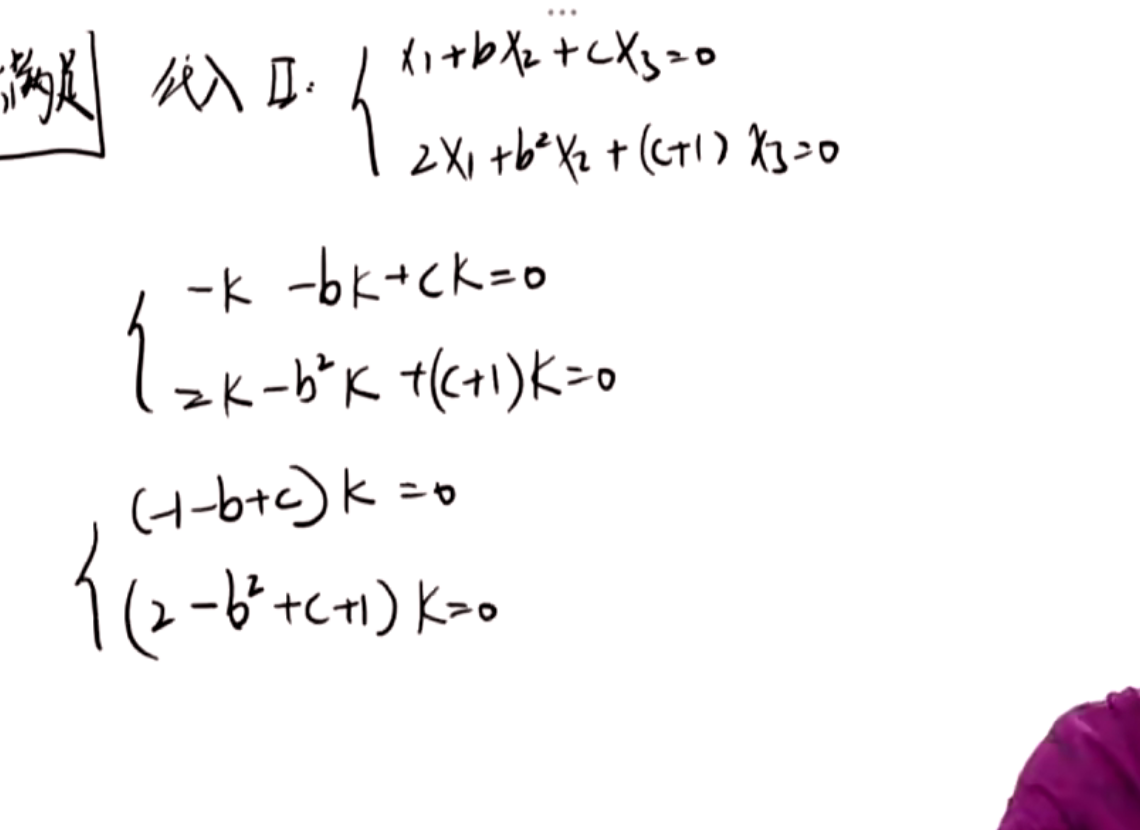 满足 代入 II: { x₁+bx₂+cx₃=0
2x₁+b²x₂+(c+1)x₃=0
{ -k -bk+ck=0
2k-b²k+(c+1)k=0
{ (-1-b+c)k=0
(2-b²+c+1)k=0